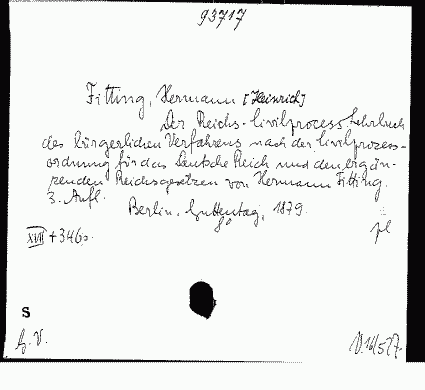 93717
Fitting, Hermann [Heinrich]
Der Reichs-Civilprocess. Lehrbuch
des bürgerlichen Verfahrens nach der Civilprozess-
ordnung für das Deutsche Reich und den ergän-
zenden Reichsgesetzen von Hermann Fitting.
3. Aufl.
Berlin, Guttentag, 1879.
8°
XVII + 346 S.
S